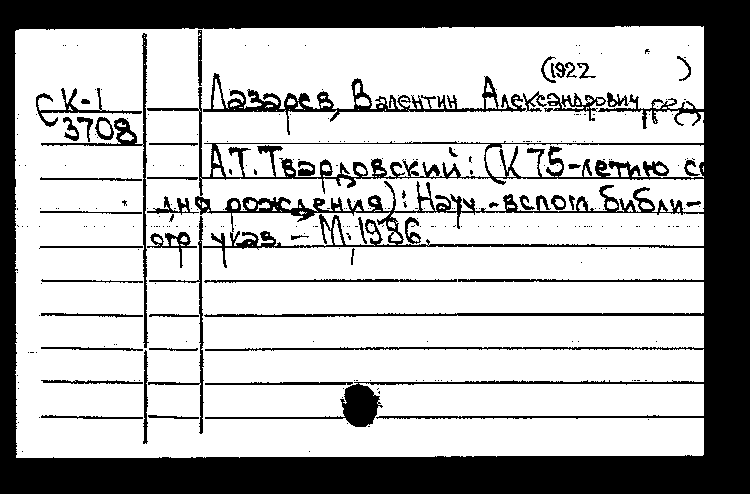 (1922 )
СК-1 Лазарев, Валентин Александрович, ред.
3708
А.Т. Твардовский: (К 75-летию со
дня рождения): Науч.-вспом. библи-
огр указ. – М. 1986.